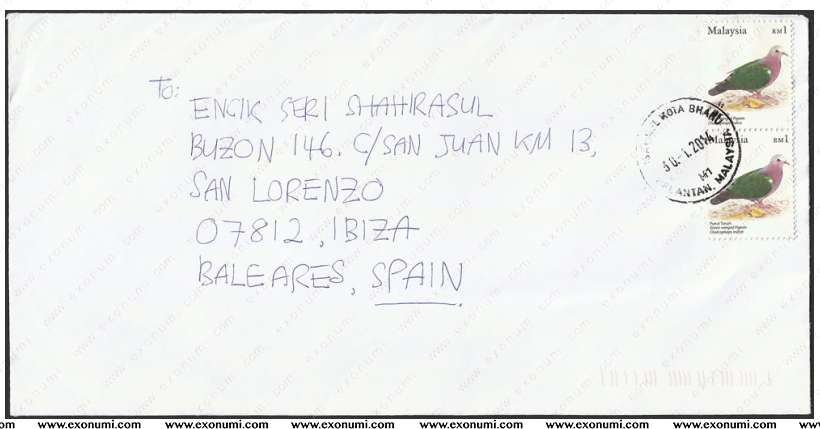 Malaysia RM1
To:
ENCIK SERI SHAHIRASUL
BUZON 146. C/SAN JUAN KM 13,
SAN LORENZO
07812, IBIZA
BALEARES, SPAIN
KOTA BHARU
30.-1.2014
M1
KELANTAN, MALAYSIA
Malaysia RM1
Punai Tanah
www.exonumi.com www.exonumi.com www.exonumi.com www.exonumi.com www.exonumi.com www.exonumi.com